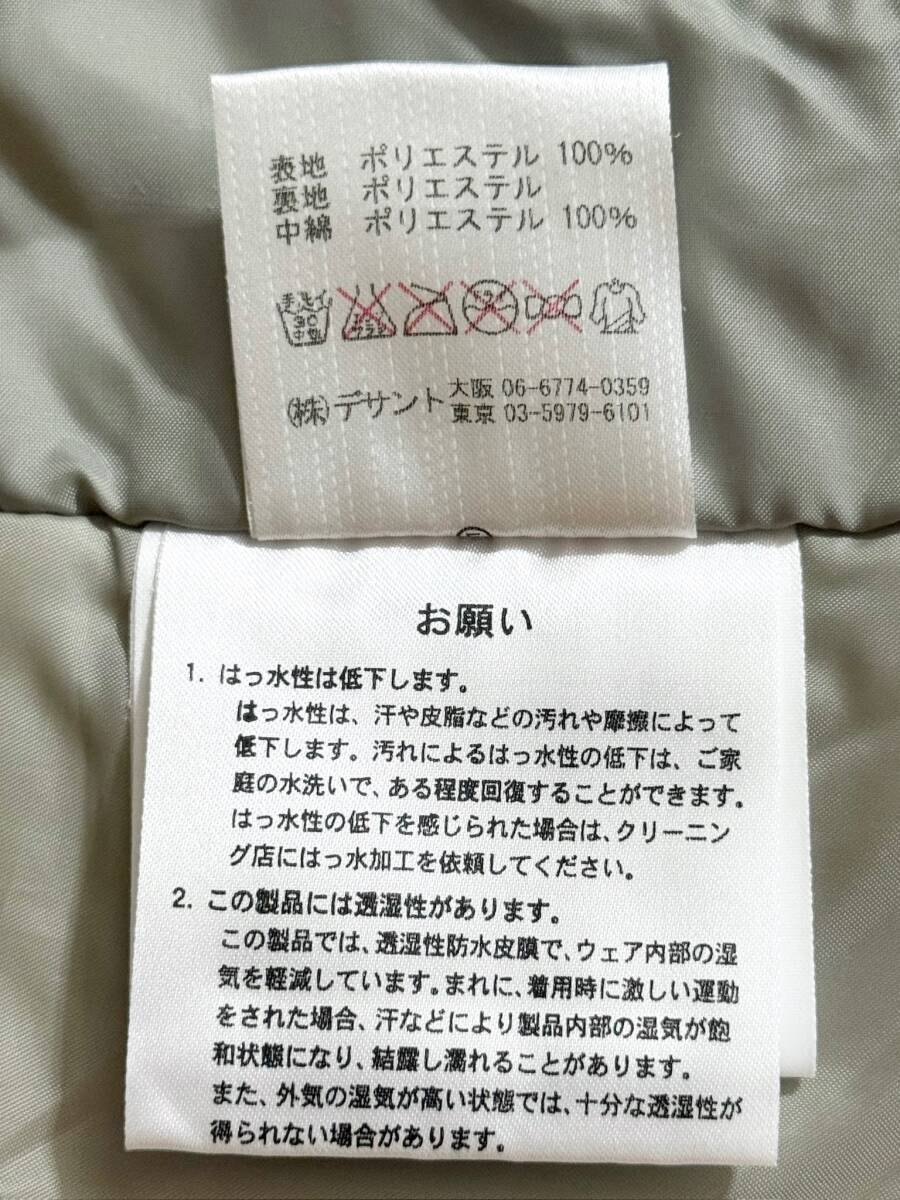 表地 ポリエステル 100%
裏地 ポリエステル
中綿 ポリエステル 100%
手洗イ
30
中性
エンソ
サラシ
(株)デサント 大阪 06-6774-0359
東京 03-5979-6101
お願い
1. はっ水性は低下します。
はっ水性は、汗や皮脂などの汚れや摩擦によって
低下します。汚れによるはっ水性の低下は、ご家
庭の水洗いで、ある程度回復することができます。
はっ水性の低下を感じられた場合は、クリーニン
グ店にはっ水加工を依頼してください。
2. この製品には透湿性があります。
この製品では、透湿性防水皮膜で、ウェア内部の湿
気を軽減しています。まれに、着用時に激しい運動
をされた場合、汗などにより製品内部の湿気が飽
和状態になり、結露し濡れることがあります。
また、外気の湿気が高い状態では、十分な透湿性が
得られない場合があります。